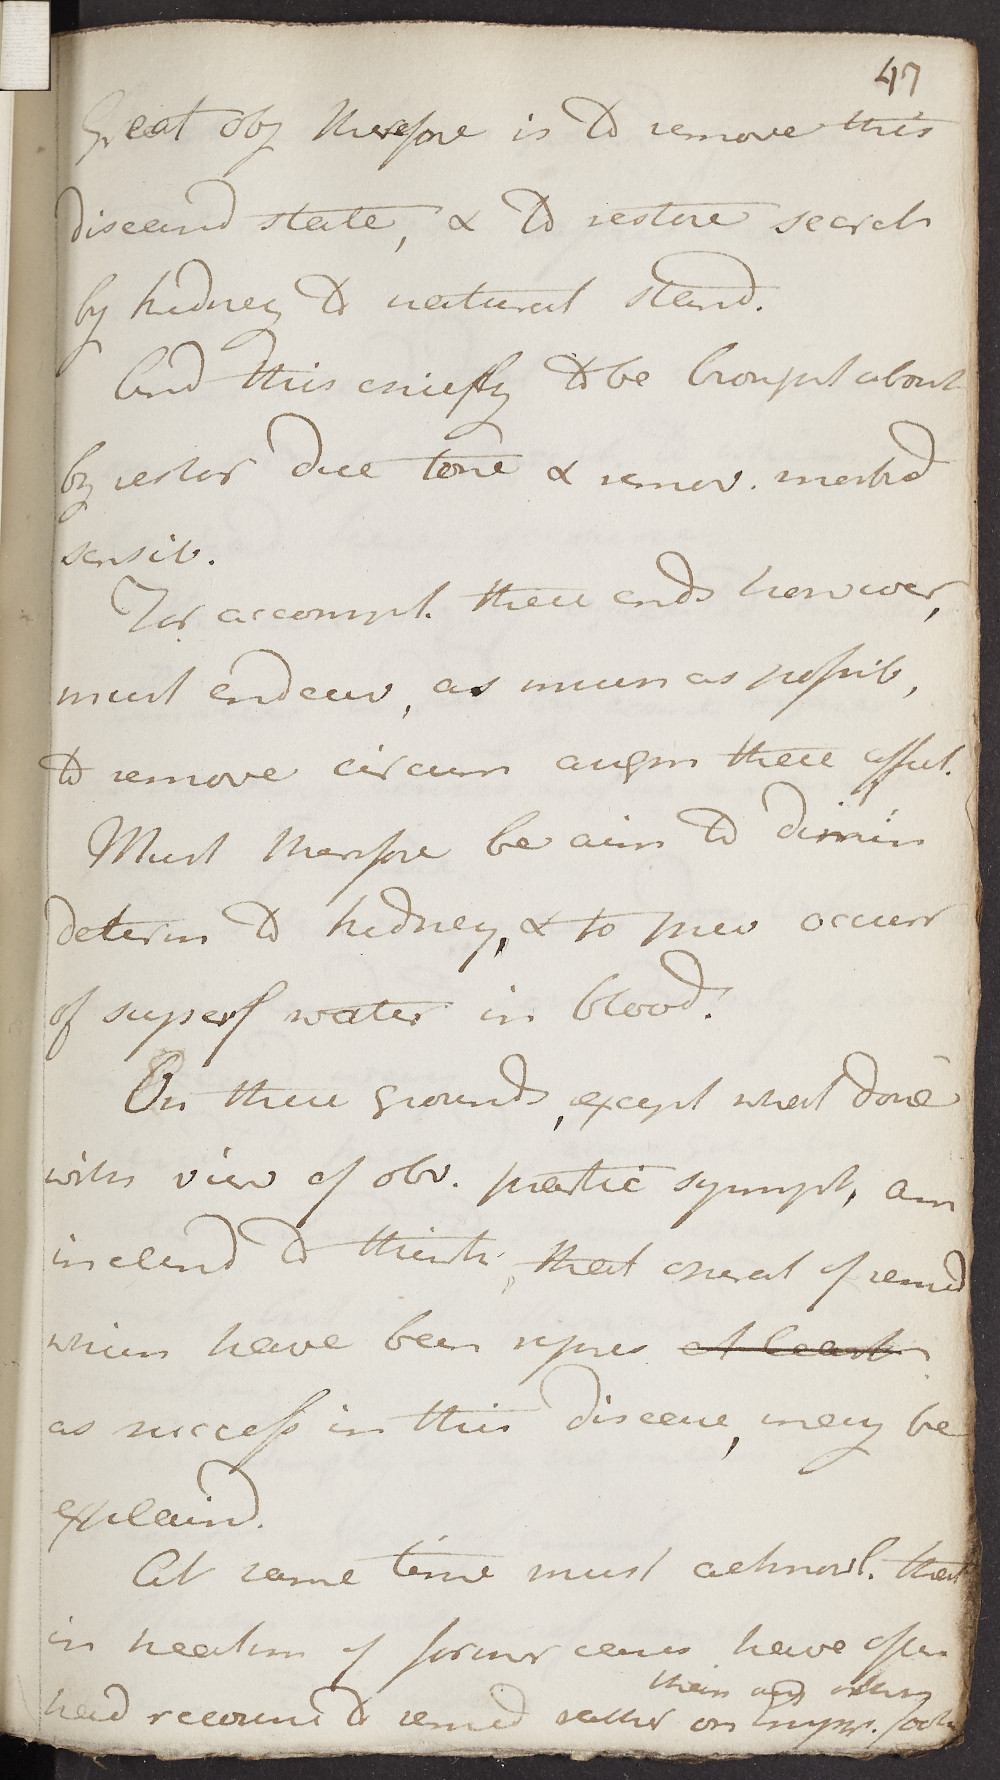 47
Great obj therefore is to remove this
diseasd state, & to restore secret
by kidney to natural stand.
And this chiefly to be brought about
by restor due tone & remov. morbid
sensib.
For accompl. these ends however,
must endeav, as much as possib,
to remove circum augm these affect.
Must therefore be aim to dimin
determ to kidney, & to prev occurr
of superf water in blood.
On these grounds, except what done
with view of obv. partic sympt, am
inclind to think, that operat of remed
which have been repres at least
as success in this disease, may be
explaind.
At same time must acknowl. that
in treatm of former cases have often
had recourse to remed rather on